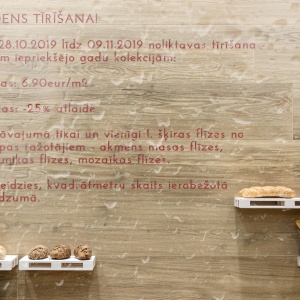 ENS TĪRĪŠANA!
28.10.2019 līdz 09.11.2019 noliktavas tīrīšana
m iepriekšējo gadu kolekcijām:
as: 6.90eur/m2
as: -25% atlaide
āvājumā tikai un vienīgi 1. šķiras flīzes no
pas ražotājiem - akmens masas flīzes,
flīzes, mozaīkas flīzes.
eidzies, kvadrātmetru skaits ierobežotā
dzumā.